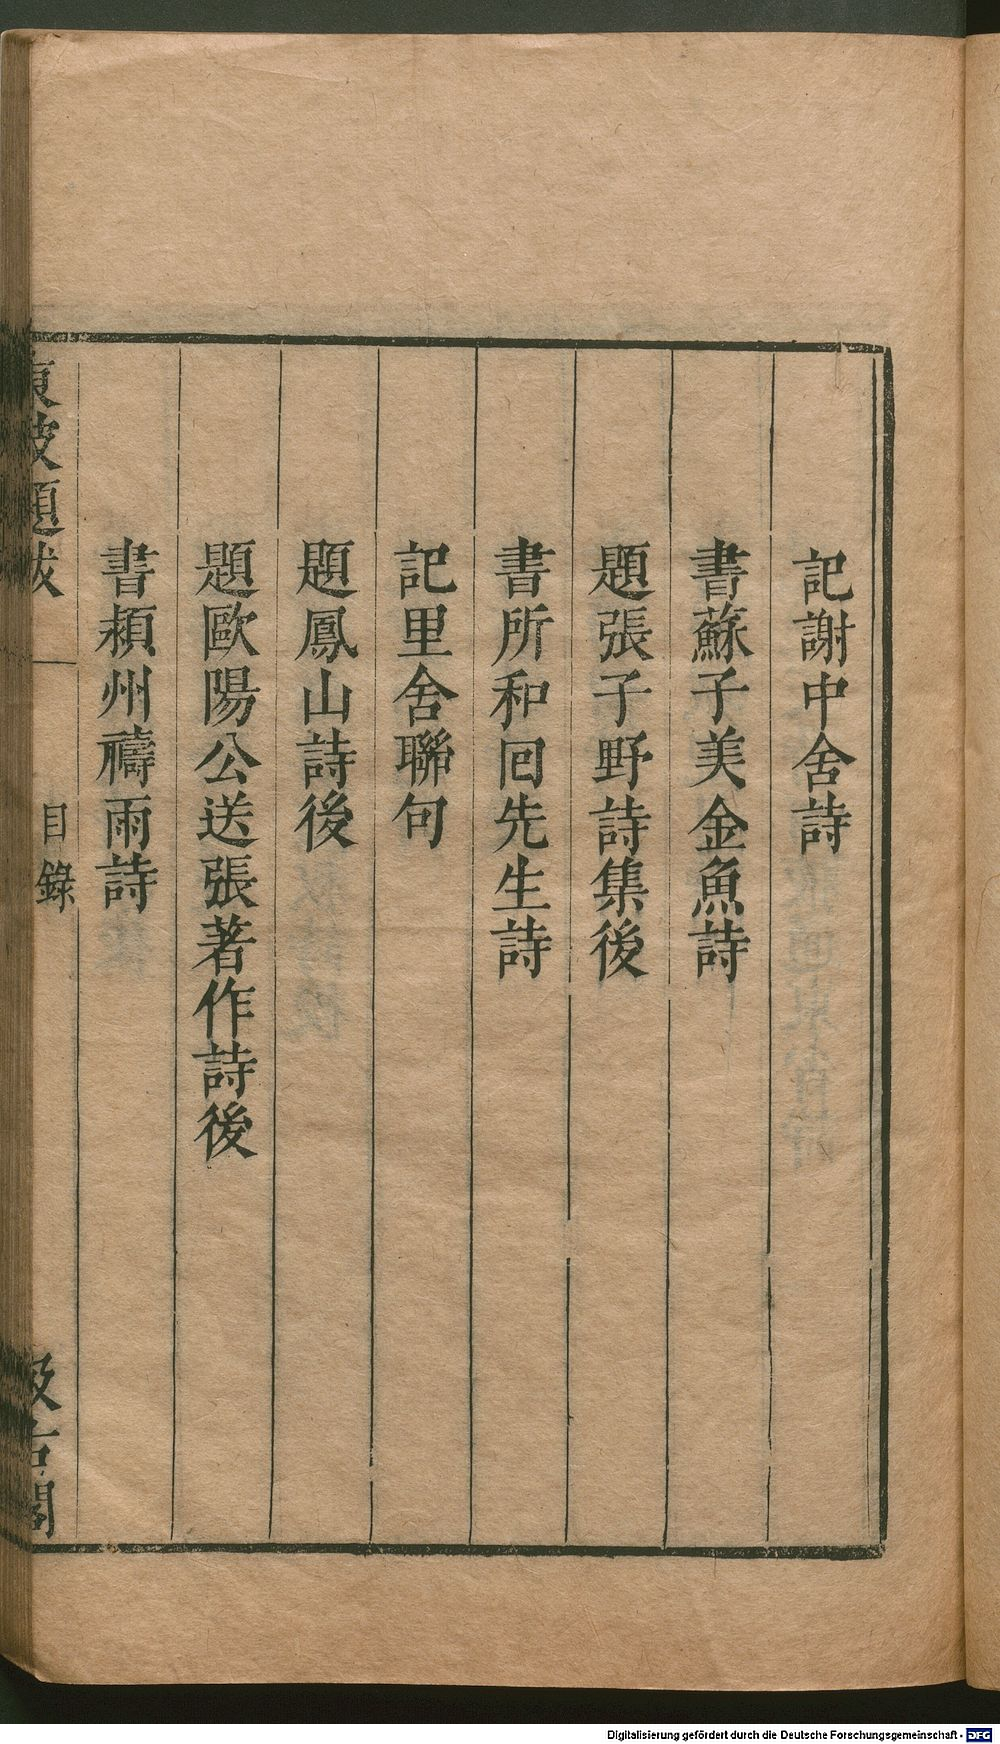 記謝中舍詩
書蘇子美金魚詩
題張子野詩集後
書所和回先生詩
記里舍聯句
題鳳山詩後
題歐陽公送張著作詩後
書潁州禱雨詩
東坡題跋 一 目錄 汲古閣
Digitalisierung gefördert durch die Deutsche Forschungsgemeinschaft - DFG